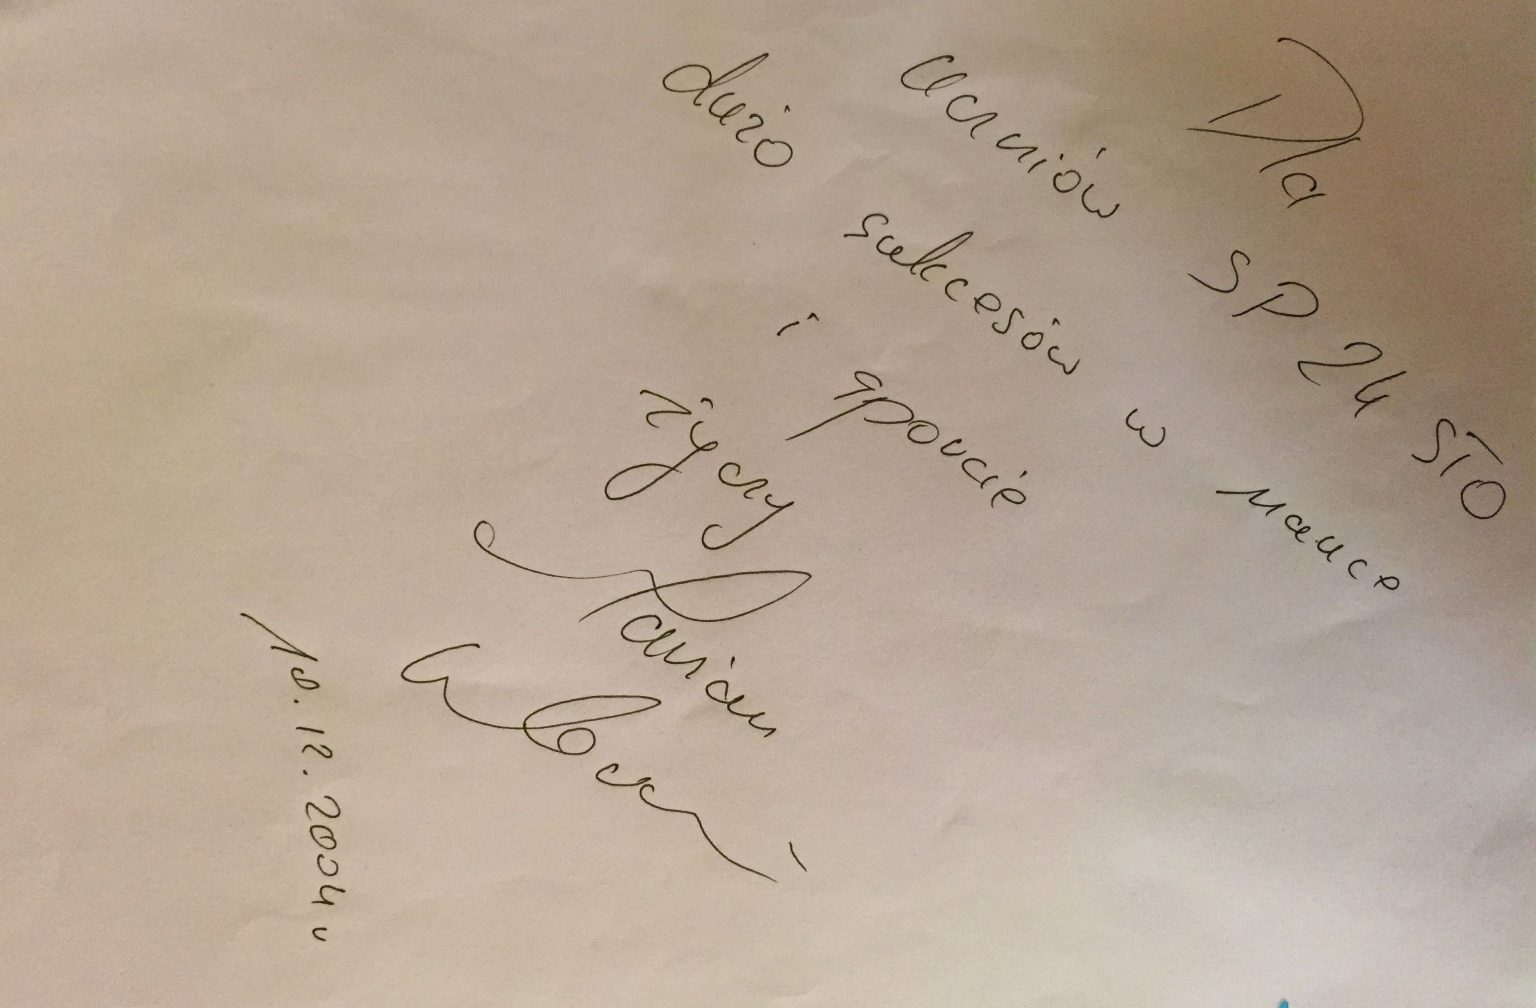 Dla
uczniów SP 24 STO
dużo sukcesów w nauce
i sporcie
życzy
Marian
10.12.2004 r